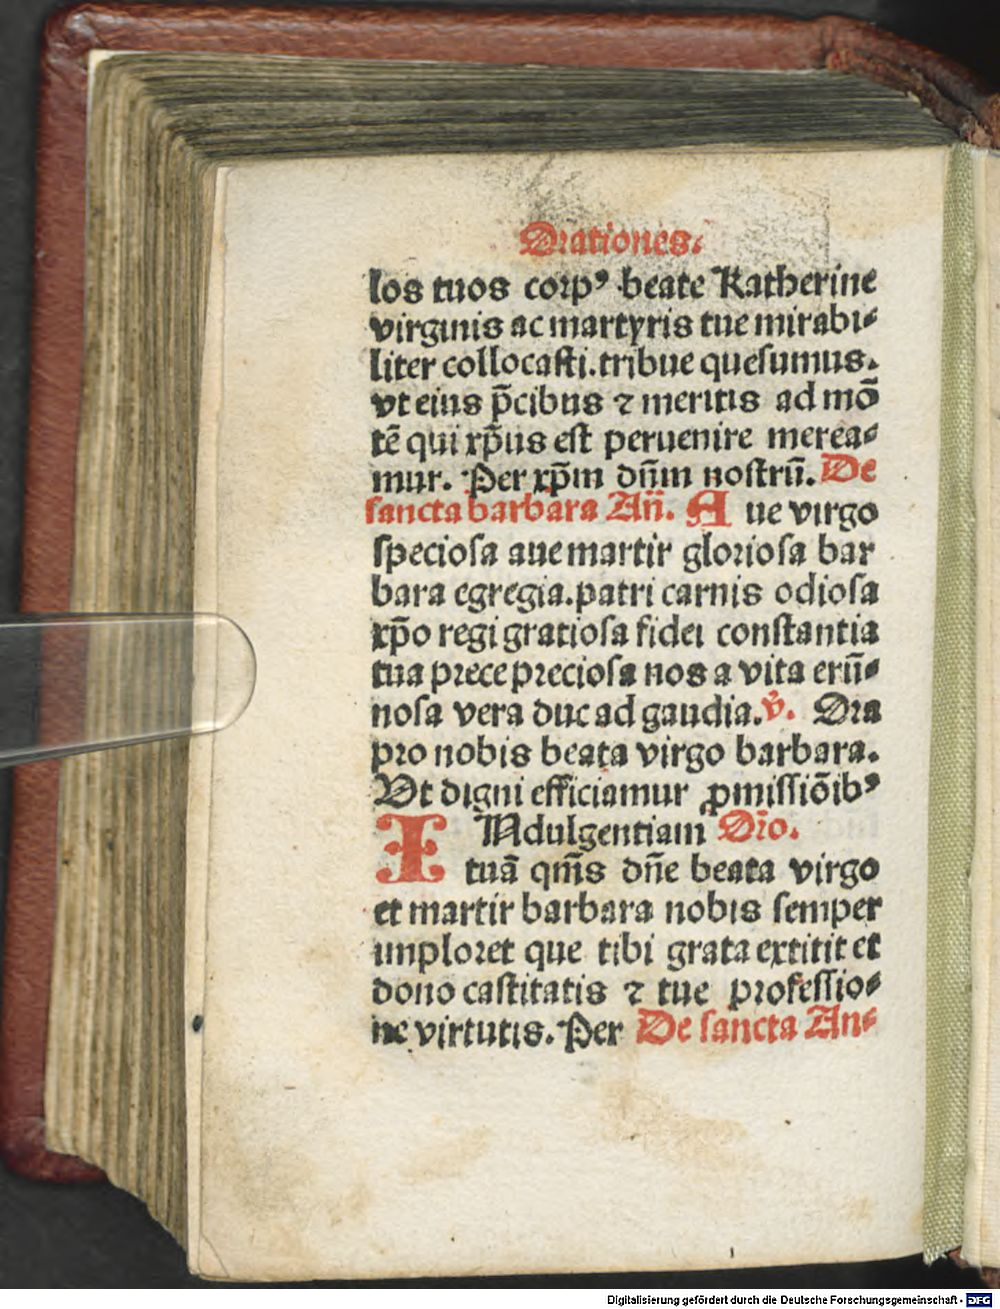 Orationes.
los tuos corpꝰ beate Katherine
virginis ac martyris tue mirabi⸗
liter collocasti. tribue quesumus.
vt eius p̄cibus ⁊ meritis ad mō
tē qui xp̄us est peruenire merea⸗
mur. Per xp̄m dn̄m nostrū. De
sancta barbara An̄. Aue virgo
speciosa aue martir gloriosa bar
bara egregia. patri carnis odiosa
xp̄o regi gratiosa fidei constantia
tua prece preciosa nos a vita erū⸗
nosa vera duc ad gaudia. v̓. Ora
pro nobis beata virgo barbara.
Vt digni efficiamur ꝓmissiōibꝰ
INdulgentiam Or̄o.
tuā qm̄s dn̄e beata virgo
et martir barbara nobis semper
imploret que tibi grata extitit et
dono castitatis ⁊ tue professio⸗
ne virtutis. Per De sancta An⸗
Digitalisierung gefördert durch die Deutsche Forschungsgemeinschaft - DFG